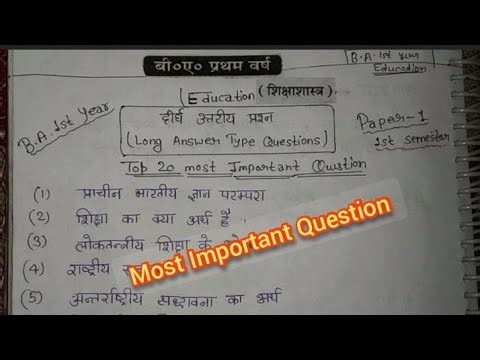 बी०ए० प्रथम वर्ष
B.A. 1st year
Education
Education (शिक्षाशास्त्र)
B.A. 1st Year
दीर्घ उत्तरीय प्रश्न
(Long Answer Type Questions)
Paper-1
1st semester
Top 20 most Important Question
(1) प्राचीन भारतीय ज्ञान परम्परा
(2) शिक्षा का क्या अर्थ है
(3) लोकतन्त्रीय शिक्षा के
(4) राष्ट्रीय
(5) अन्तर्राष्ट्रीय सद्भावना का अर्थ
Most Important Question